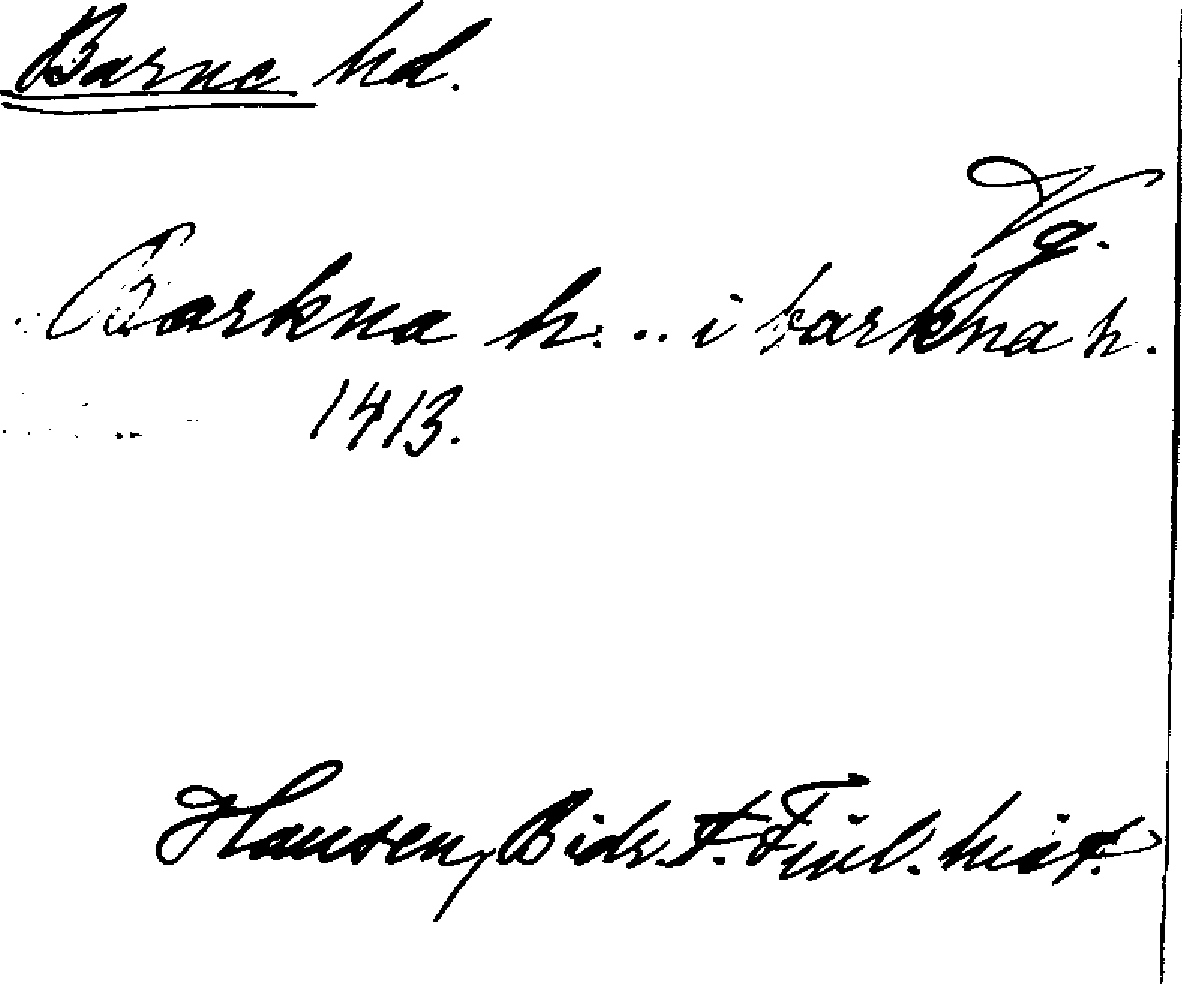 Barne hd.
Vg.
Barkna h. .. i barkna h.
1413.
Hausen, Bidr. t. Finl. hist.